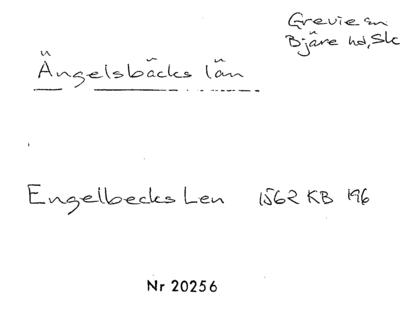 Grevie sn
Bjäre hd, Sk
Ängelsbäcks län
Engelbecks Len 1562 KB 196
Nr 20256